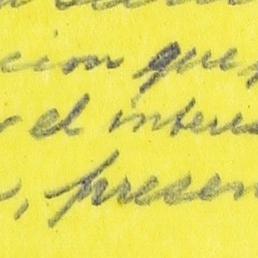 cion que
el interes
, presen